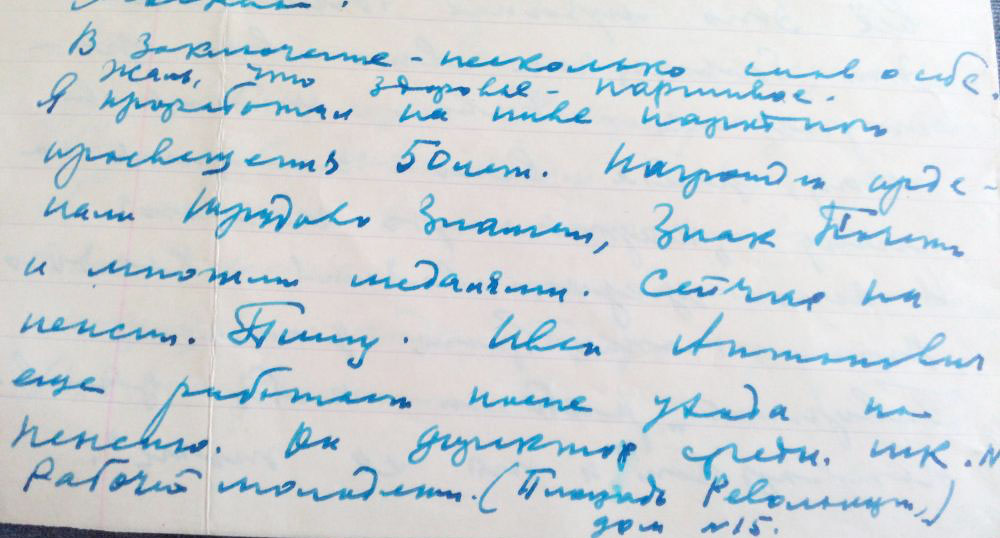 В заключение - несколько слов о себе.
Жаль, что здоровье - паршивое.
Я проработал на ниве народного
просвещения 50 лет. Награжден орде-
нами Трудового Знамени, Знак Почета
и многими медалями. Сейчас на
пенсии. Пишу. Иван Антонович
еще работает после ухода на
пенсию. Он директор средн. шк. N
Рабочей молодежи. (Площадь Революции,)
дом №15.